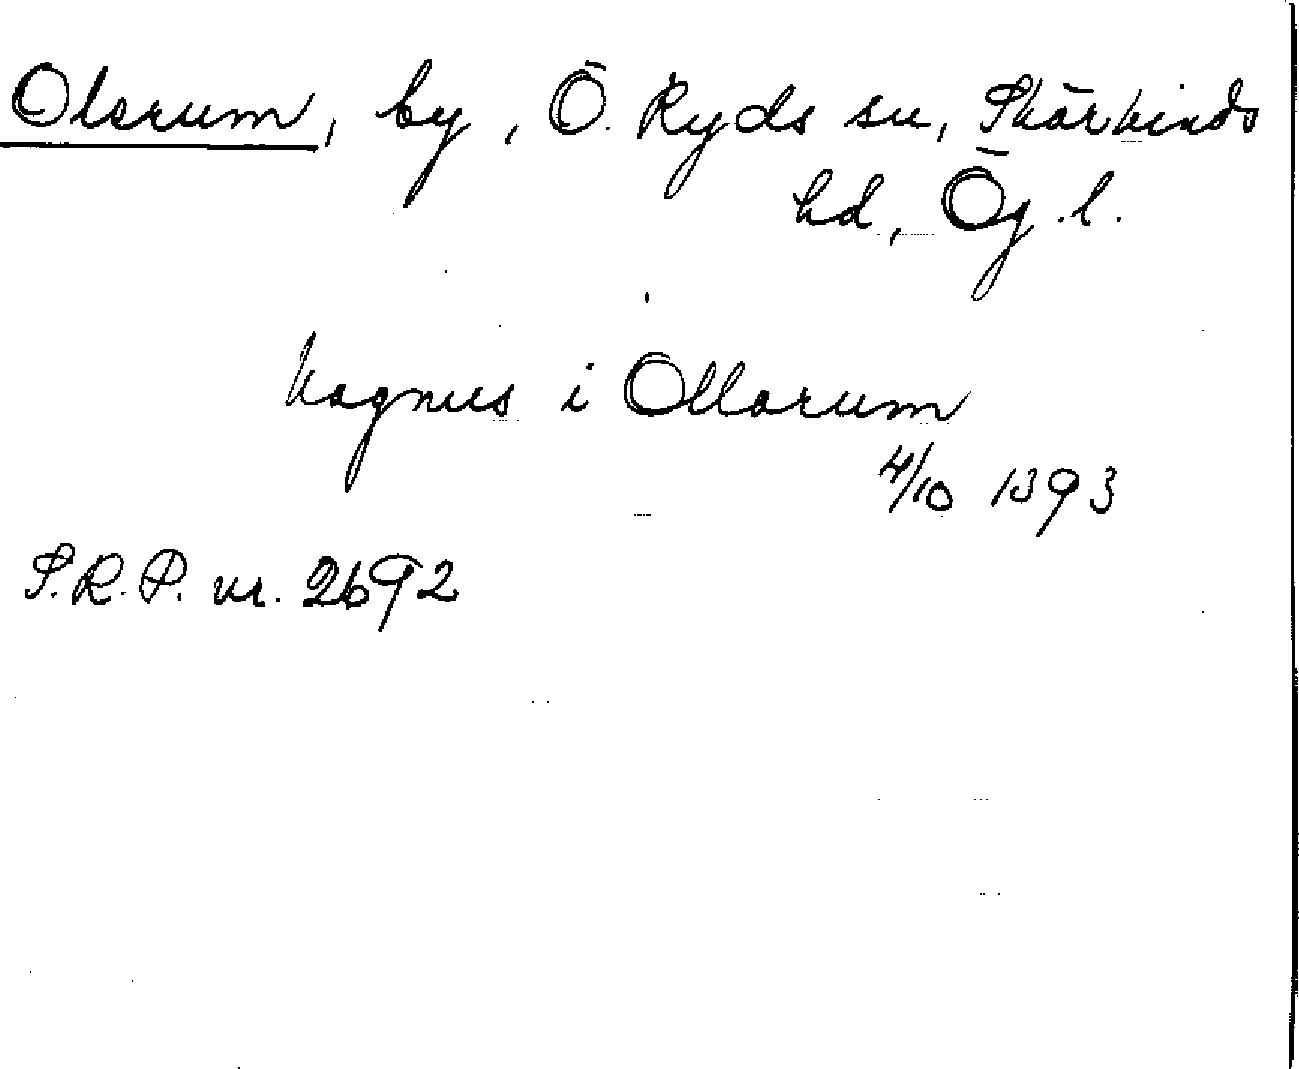 Olsrum, by, Ö. Ryds sn, Skärkinds
hd, Ög.l.
Magnus i Ollarum
4/10 1393
S.R.P. nr. 2692